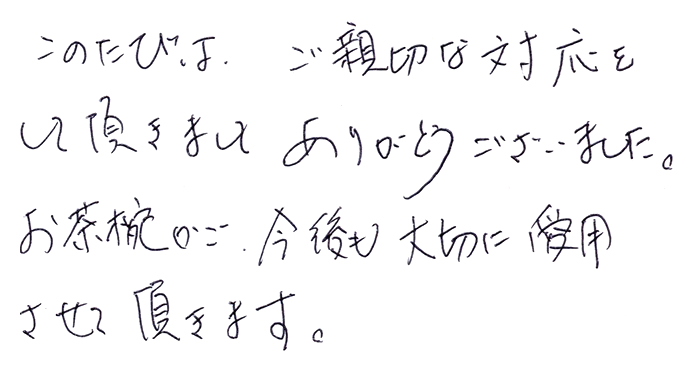 このたびは、ご親切な対応を
して頂きまして ありがとうございました。
お茶椀かご、今後も大切に愛用
させて頂きます。